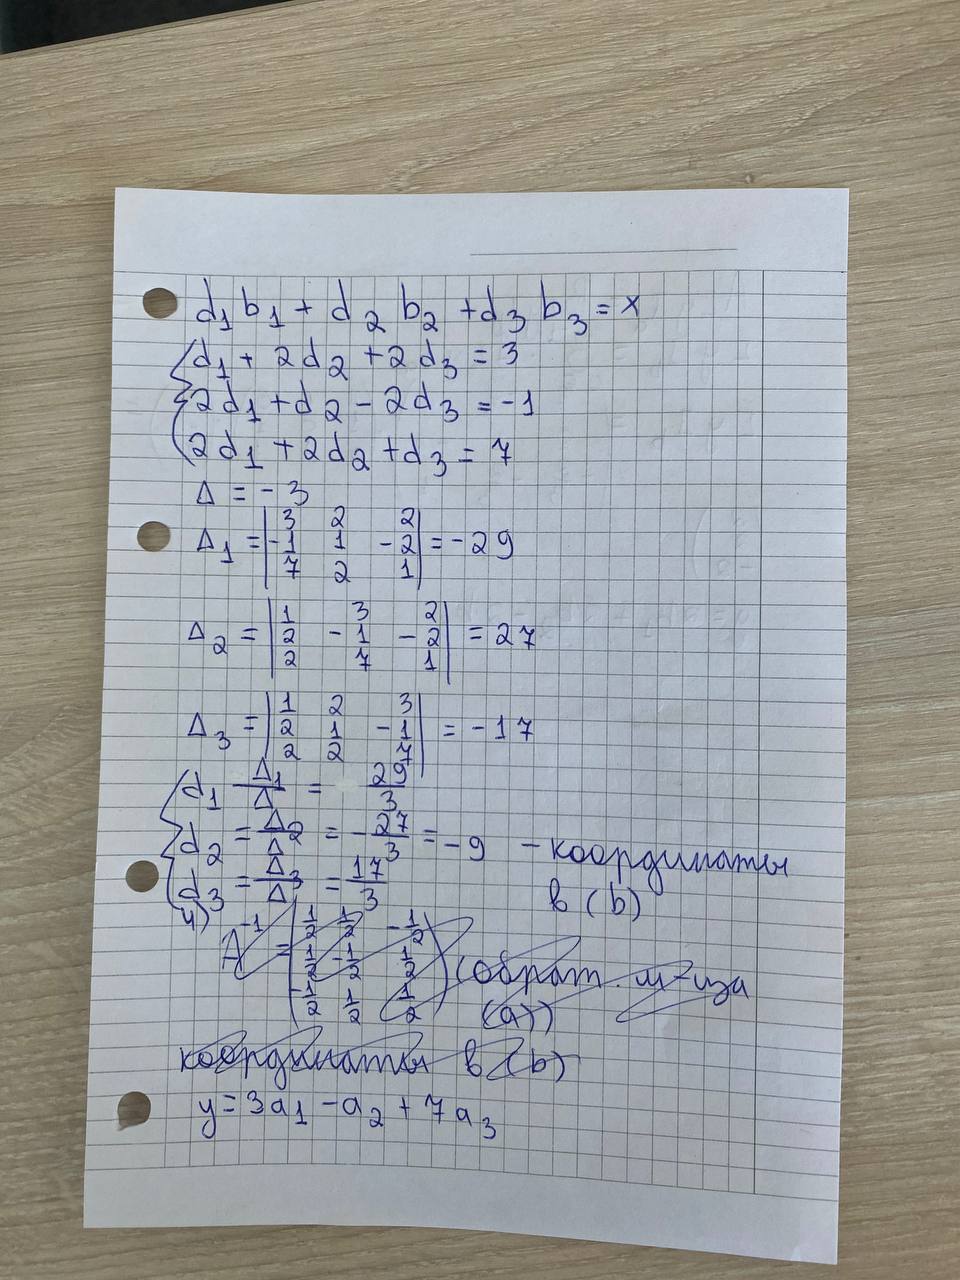 d₁ b₁ + d₂ b₂ + d₃ b₃ = x
{ d₁ + 2d₂ + 2d₃ = 3
2d₁ + d₂ - 2d₃ = -1
2d₁ + 2d₂ + d₃ = 7
Δ = -3
Δ₁ = | 3 2 2 |
| -1 1 -2 | = -29
| 7 2 1 |
Δ₂ = | 1 3 2 |
| 2 -1 -2 | = 27
| 2 7 1 |
Δ₃ = | 1 2 3 |
| 2 1 -1 | = -17
| 2 2 7 |
{ d₁ Δ₁/Δ = 29/3
d₂ = Δ₂/Δ = -27/3 = -9 - координаты
d₃ = Δ₃/Δ = 17/3 в (b)
4)
A⁻¹ = ( 1/2 1/2 -1/2
1/2 -1/2 1/2
-1/2 1/2 1/2 ) (обрат. м-ца
(a))
координаты в (b)
y = 3a₁ - a₂ + 7a₃